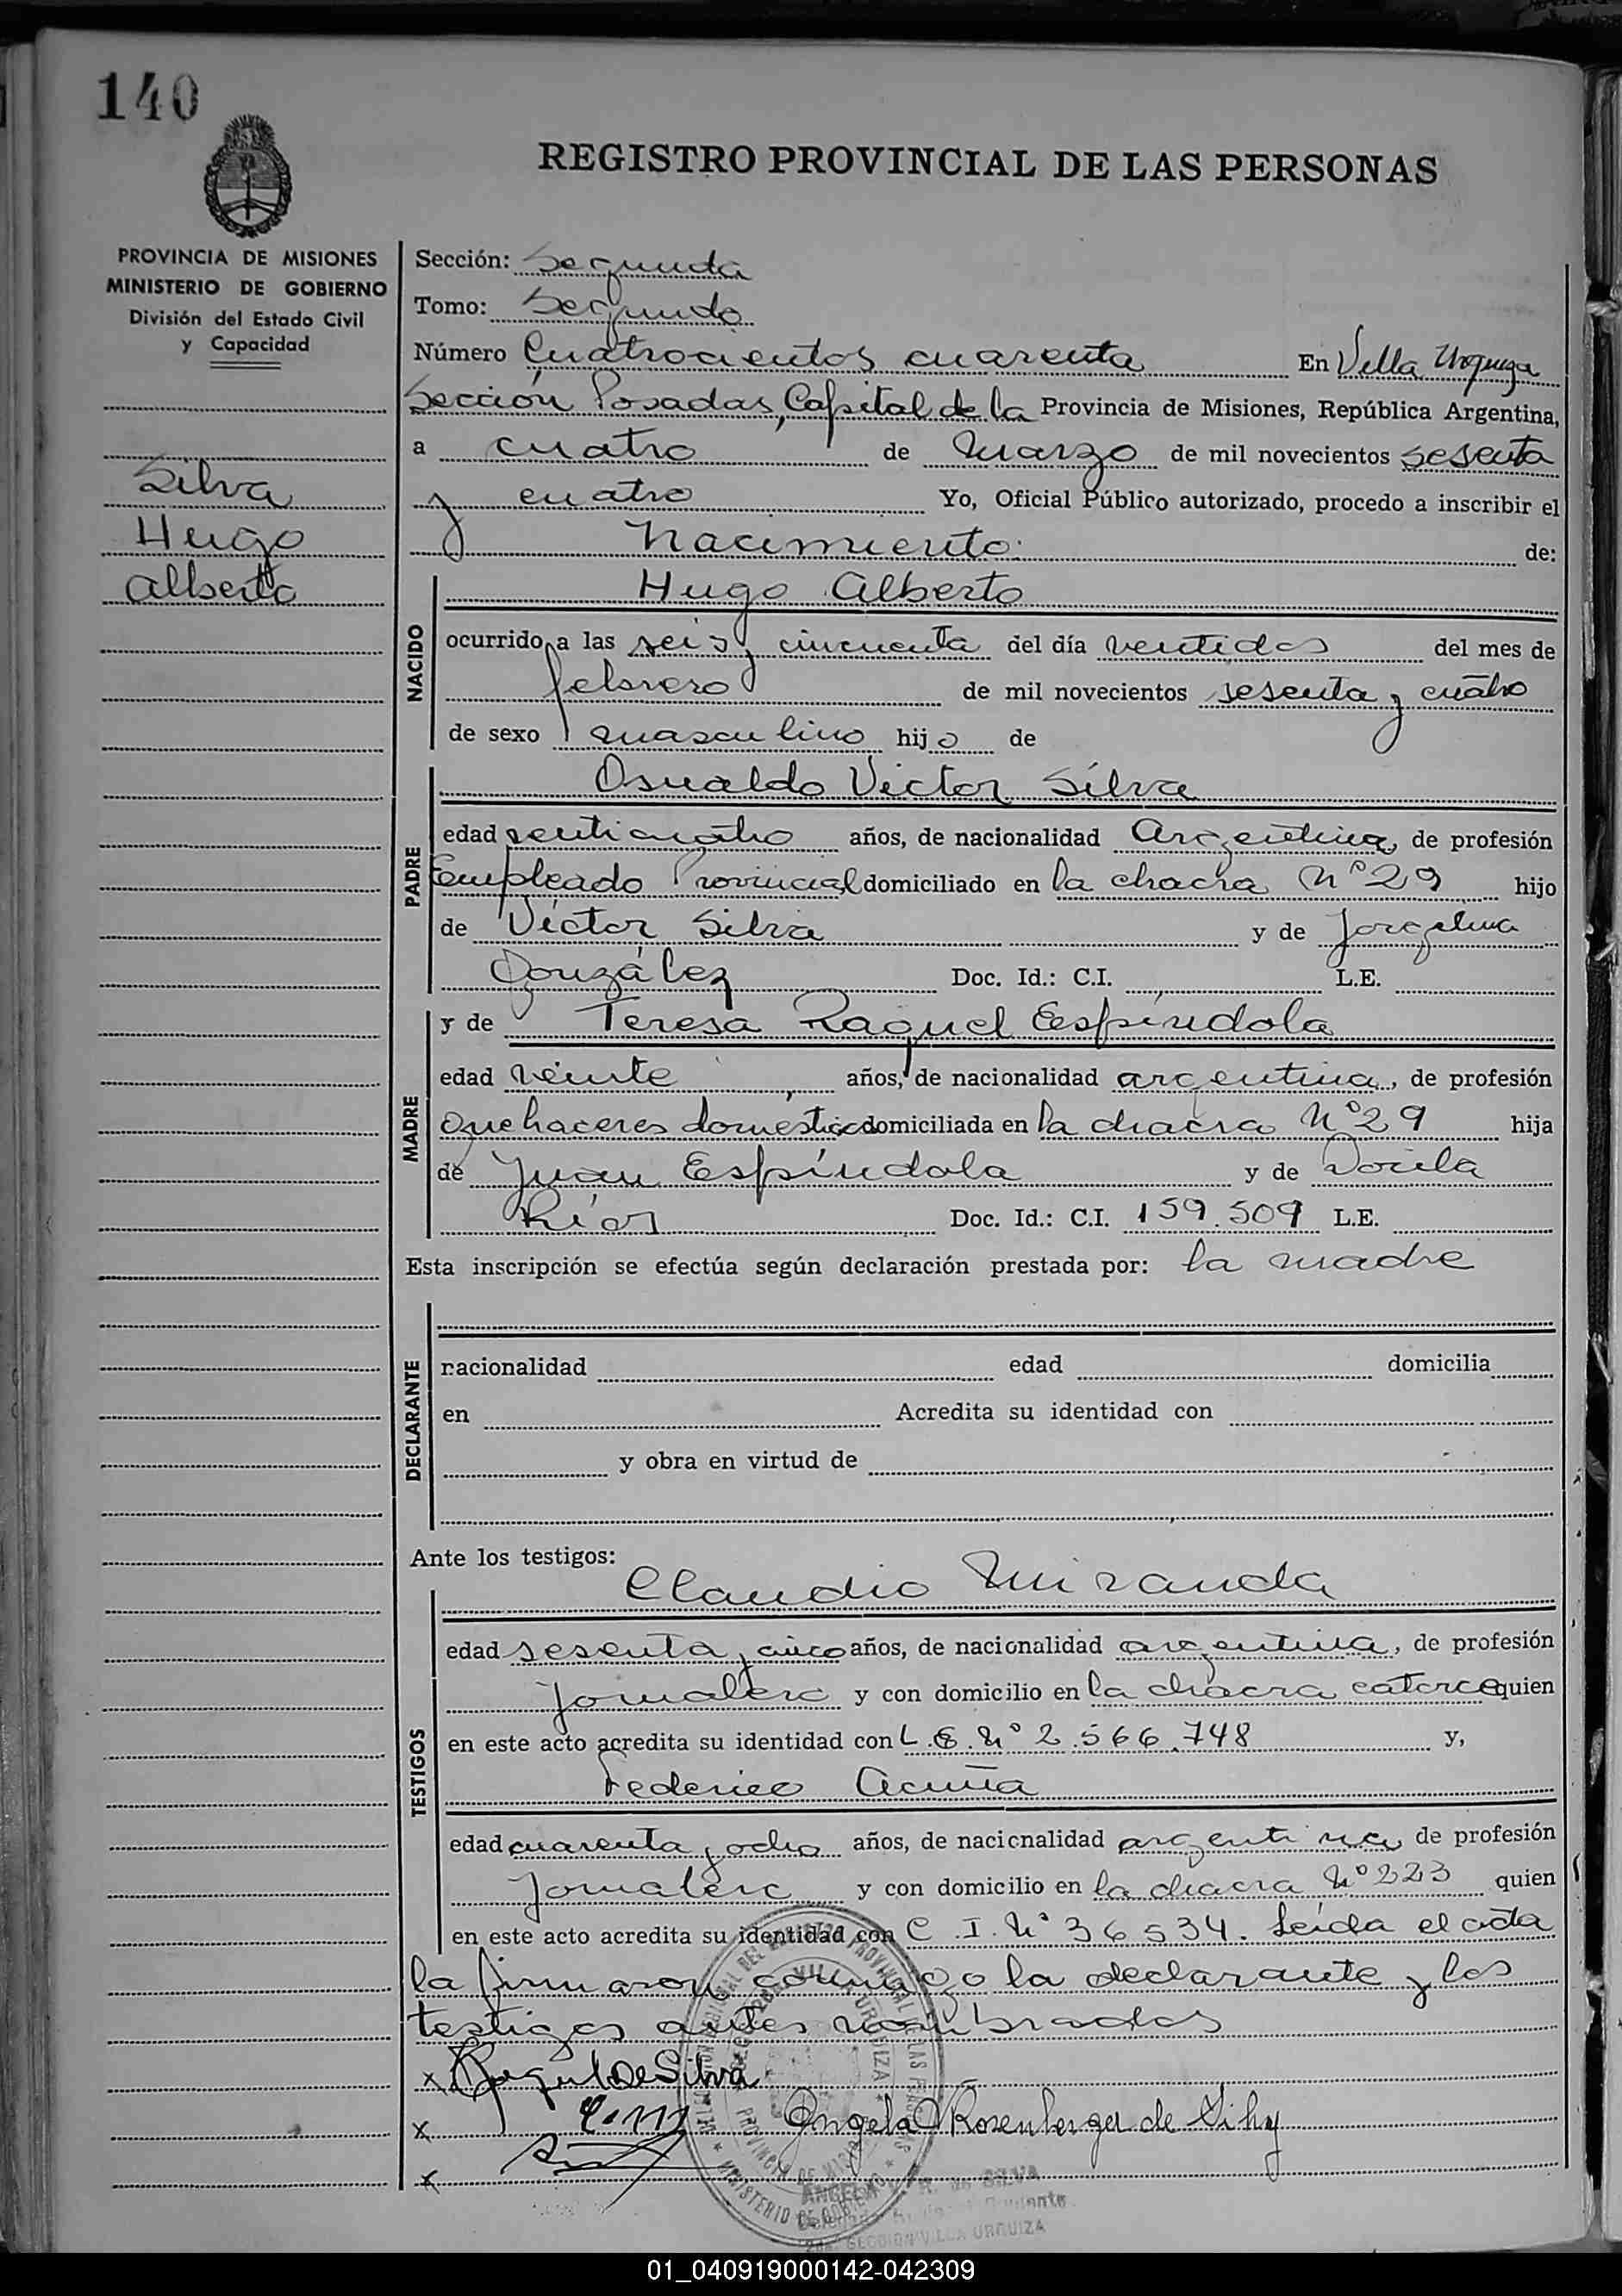 140
REGISTRO PROVINCIAL DE LAS PERSONAS
PROVINCIA DE MISIONES
MINISTERIO DE GOBIERNO
División del Estado Civil
y Capacidad
Silva
Hugo
Alberto
Sección: Segunda
Tomo: Segundo
Número Cuatrocientos cuarenta En Villa Urquiza
Sección Posadas, Capital de la Provincia de Misiones, República Argentina,
a cuatro de Marzo de mil novecientos sesenta
y cuatro Yo, Oficial Público autorizado, procedo a inscribir el
Nacimiento de:
NACIDO
Hugo Alberto
ocurrido a las seis y cincuenta del día ventidos del mes de
febrero de mil novecientos sesenta y cuatro
de sexo masculino hijo de
PADRE
Osvaldo Victor Silva
edad venticuatro años, de nacionalidad Argentina, de profesión
Empleado Provincial domiciliado en la chacra Nº 29 hijo
de Victor Silva y de Jorgelina
González Doc. Id.: C.I. L.E.
MADRE
y de Teresa Raquel Espíndola
edad veinte años, de nacionalidad argentina, de profesión
Quehaceres domésticos domiciliada en la chacra Nº 29 hija
de Juan Espíndola y de Dorila
Ríos Doc. Id.: C.I. 159.509 L.E.
Esta inscripción se efectúa según declaración prestada por: la madre
DECLARANTE
nacionalidad edad domicilia
en Acredita su identidad con
y obra en virtud de
Ante los testigos:
TESTIGOS
Claudio Miranda
edad sesenta y cinco años, de nacionalidad argentina, de profesión
Jornalero y con domicilio en la chacra catorce quien
en este acto acredita su identidad con L.E. Nº 2.566.748 y,
Federico Acuña
edad cuarenta y ocho años, de nacionalidad argentina, de profesión
Jornalero y con domicilio en la chacra Nº 223 quien
en este acto acredita su identidad con C.I. Nº 36534. Leída el acta
la firmaron conmigo la declarante y los
testigos antes nombrados
x Raquel de Silva
x Angela Rosenberger de
x
SECCION VILLA URQUIZA
01_040919000142-042309